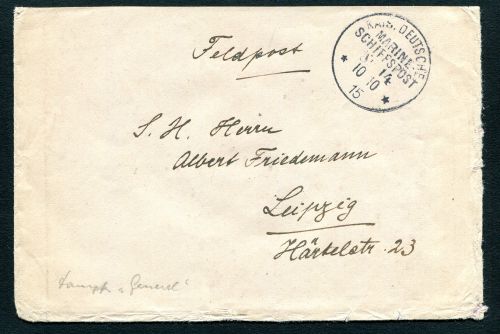 Feldpost
KAIS. DEUTSCHE
MARINE-
SCHIFFSPOST
No 14
* 10 10 *
15
S. H. Herrn
Albert Friedemann
Leipzig
Härtelstr. 23
Dampfer "General"